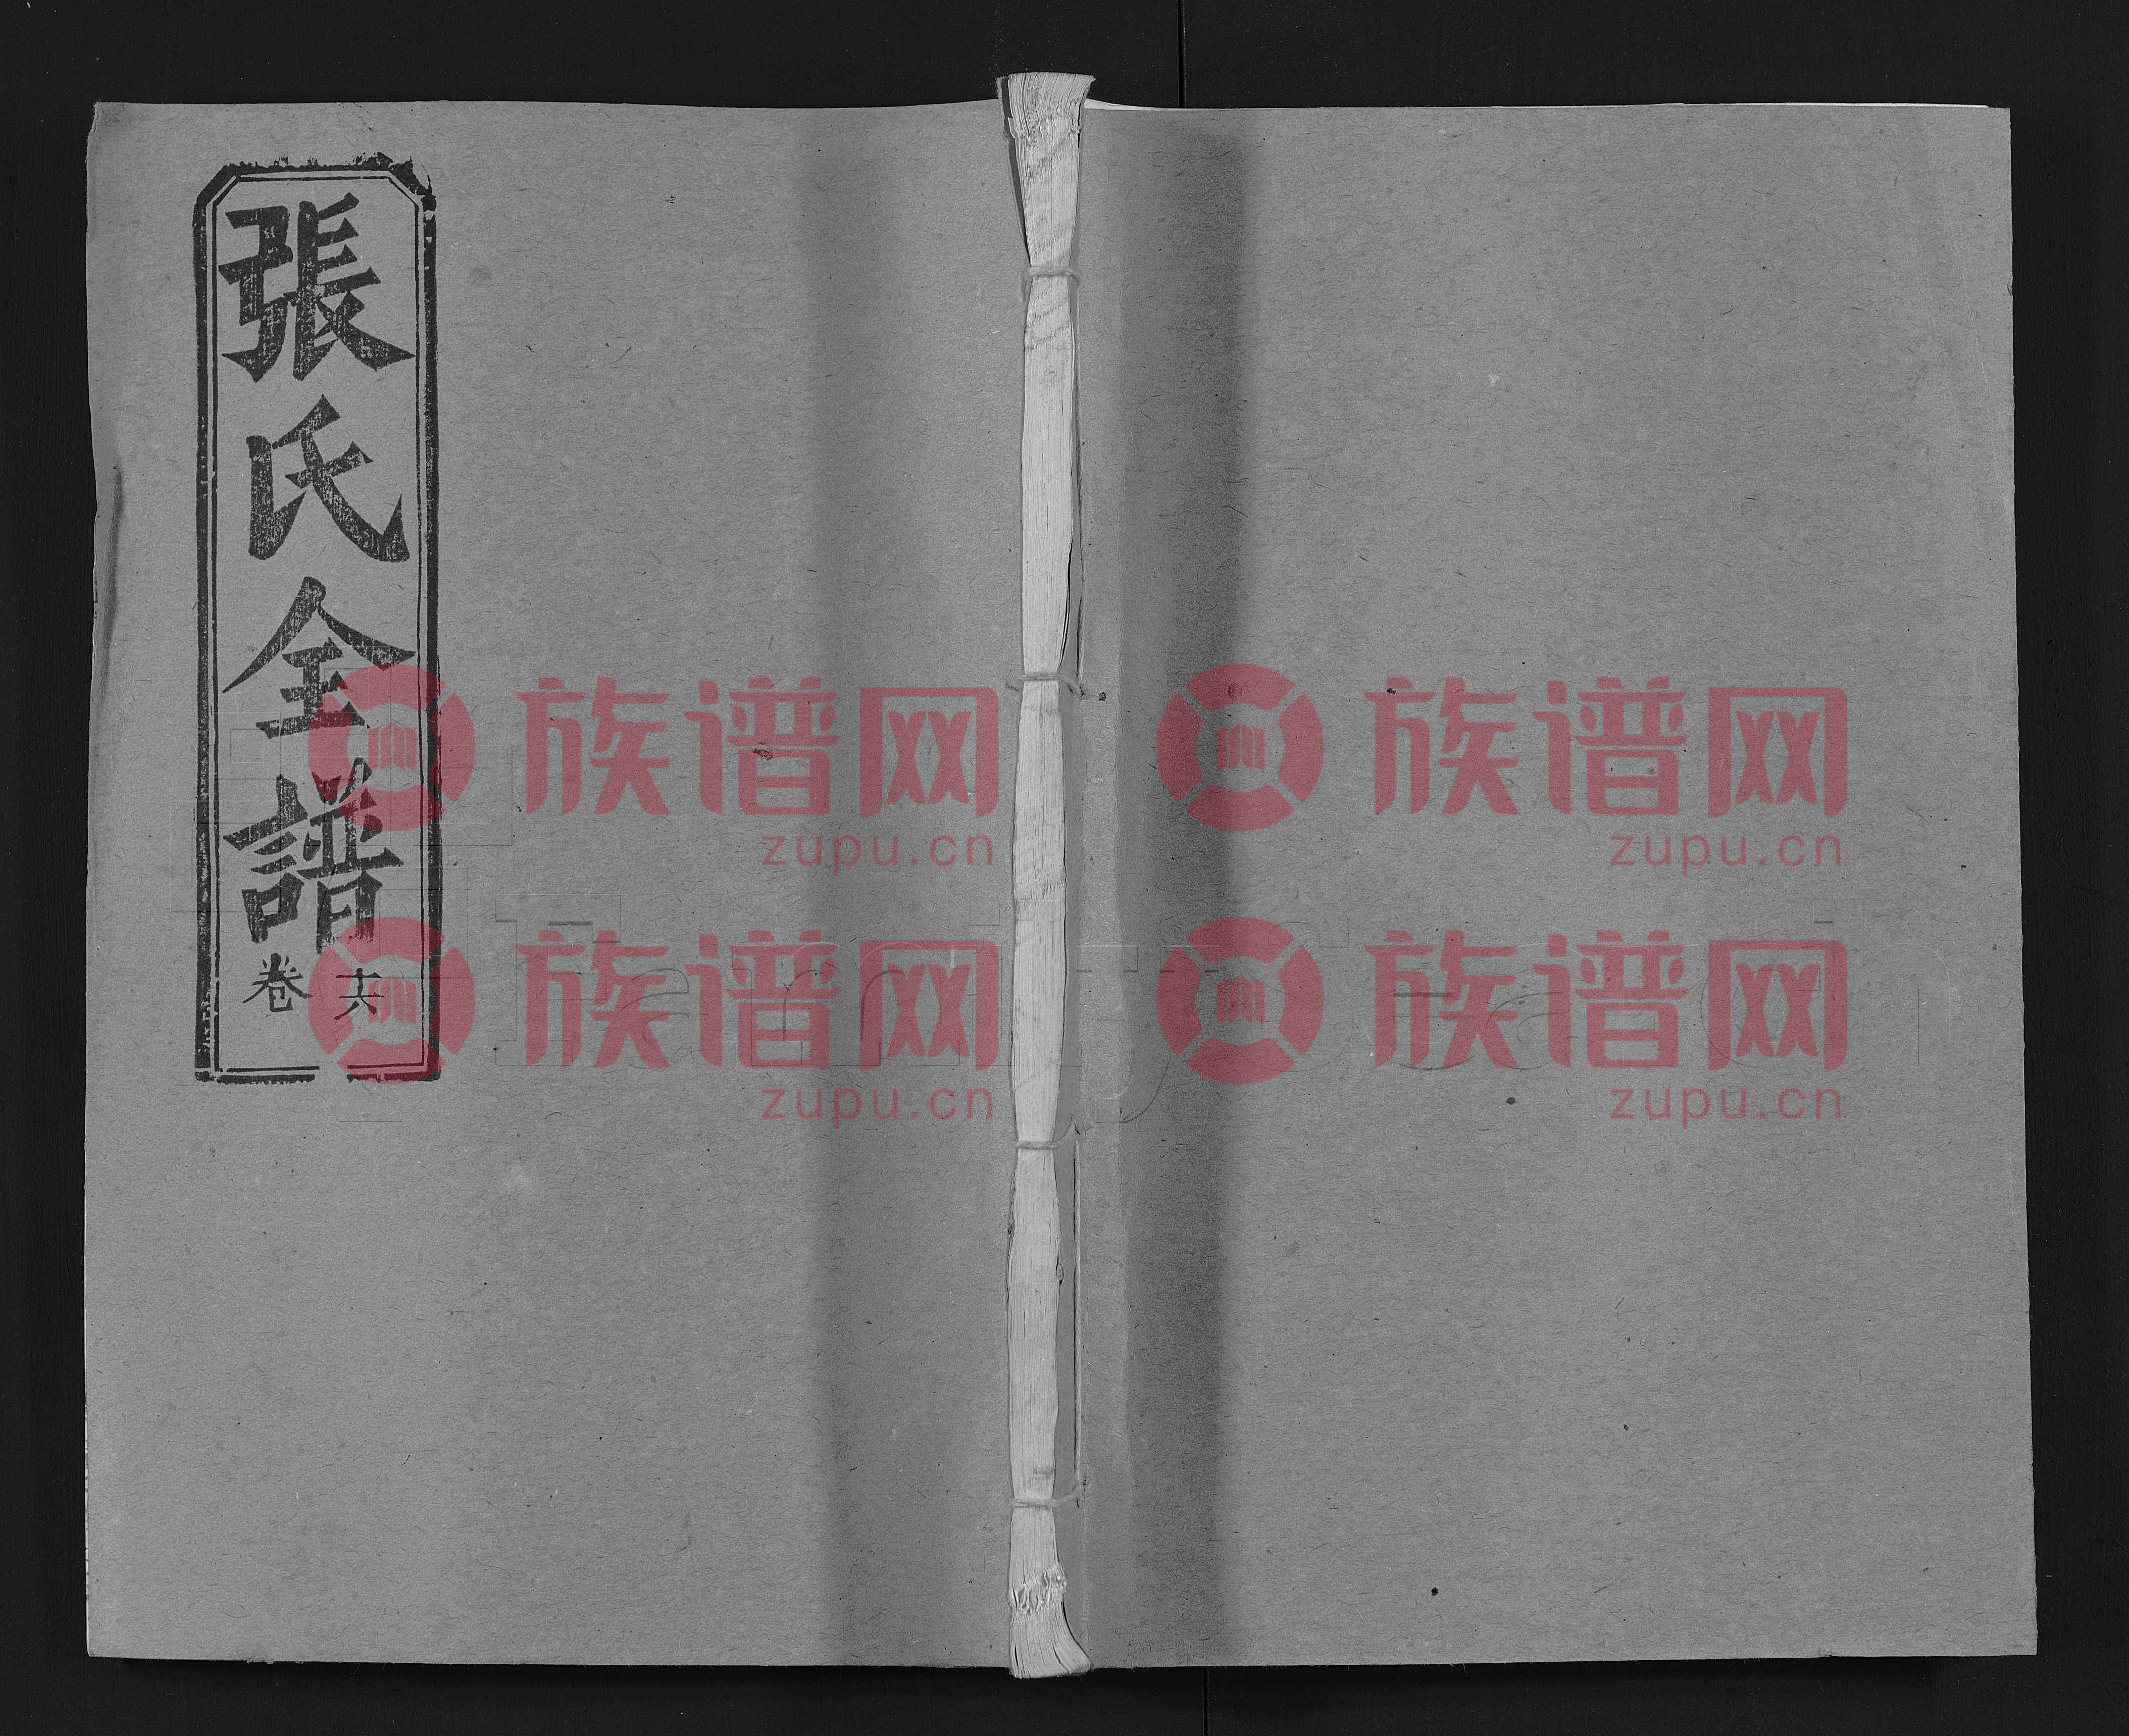 張氏全譜
卷十六
族谱网
zupu.cn
族谱网
zupu.cn
族谱网
zupu.cn
族谱网
zupu.cn